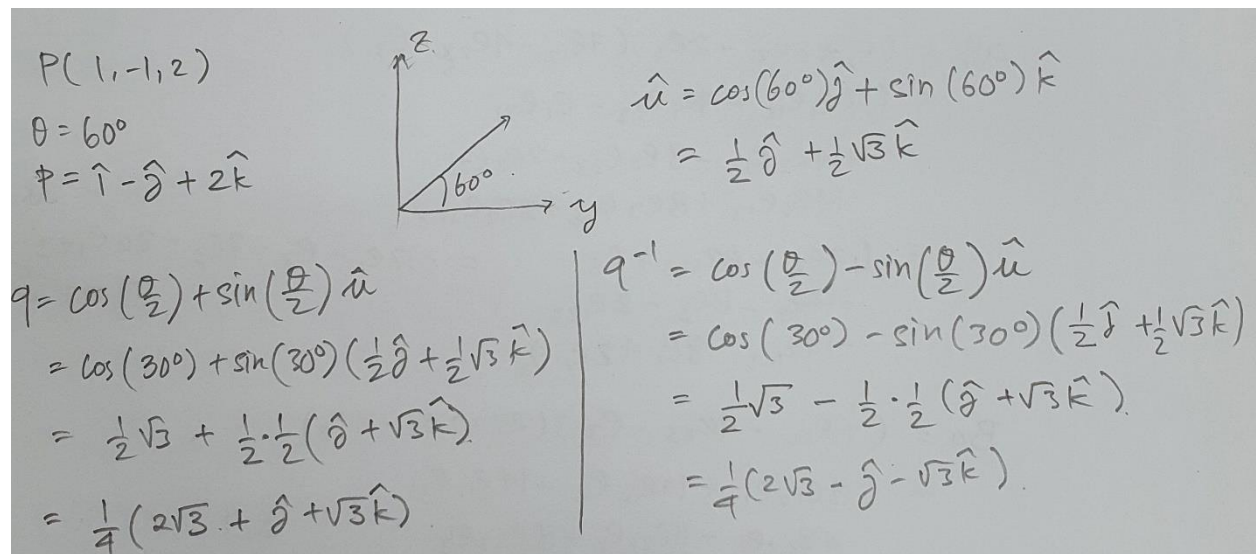 P(1,-1,2)
θ = 60°
p = î - ĵ + 2k̂
z
60°
y
û = cos(60°)ĵ + sin(60°)k̂
= ½ĵ + ½√3k̂
q = cos(θ/2) + sin(θ/2)û
= cos(30°) + sin(30°)(½ĵ + ½√3k̂)
= ½√3 + ½·½(ĵ + √3k̂)
= ¼(2√3 + ĵ + √3k̂)
q⁻¹ = cos(θ/2) - sin(θ/2)û
= cos(30°) - sin(30°)(½ĵ + ½√3k̂)
= ½√3 - ½·½(ĵ + √3k̂).
= ¼(2√3 - ĵ - √3k̂).